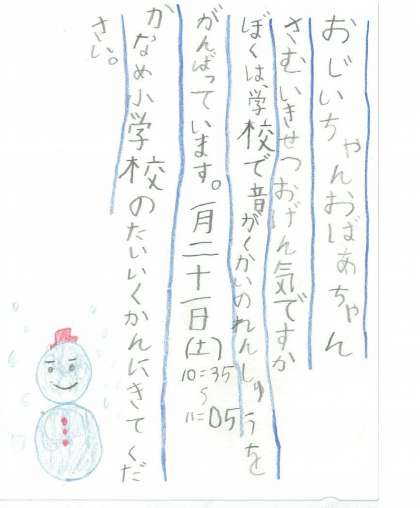 おじいちゃんおばあちゃん
さむいきせつおげん気ですか
ぼくは、学校で音がくかいのれんしゅうを
がんばっています。一月二十一日(土)
10:35
〜
11:05
かなめ小学校のたいいくかんにきてくだ
さい。